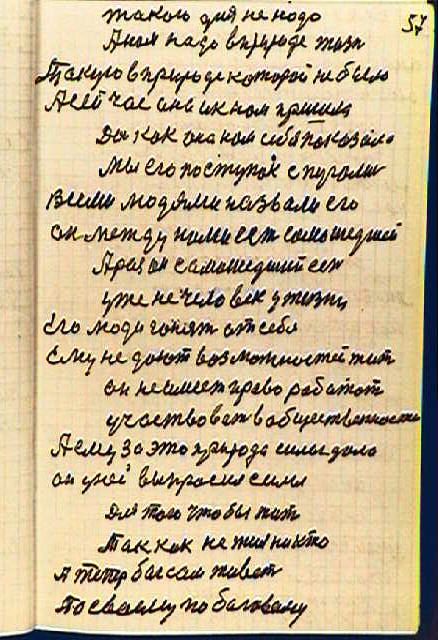 57
такого дня не надо
А нам надо в природе жизн
Такую в природе которой не было
А сей час она ик нам пришла
Да как она нам себя показала
мы его поступок спугали
Всеми людями назвали его
он между нами ест самошедшей
А раз он самошедший ест
уже не человек у жизни
Его люди гонят от себя
Ему не дают возможностей жит
он не имеет право работат
участвоват в общественности
А ему за это природа силы дала
он у неё выпросил силы
Для того что бы жит
Так как не жил ни кто
А тепер бы сам живет
По своему по баговому